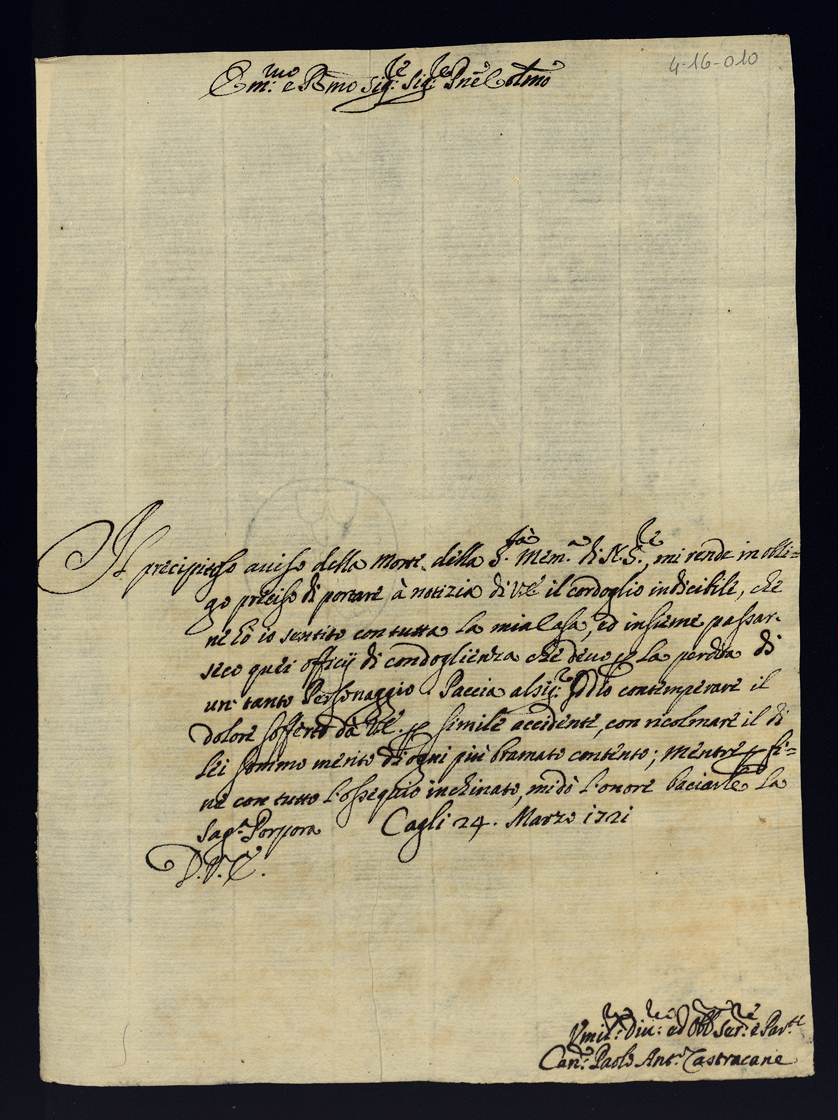 4-16-010
Em.mo e Rmo Sig.re Sig.re Pne Colmo
Il precipitoso aviso della Morte della S.ta Mem.a di N. S.re, mi rende in obli=
go preciso di portare à notizia di V.E. il cordoglio indicibile, che
ne hò io sentito con tutta la mia Casa, ed insieme passar
seco quei officij di condoglienza che devo p la perdita di
un tanto Personaggio. Faccia al Sig.re Iddio contemperare il
dolore sofferto dà V.E. p simile accidente, con ricolmare il di
lei sommo merito di ogni più bramato contento; mentre p fi=
ne con tutto l'ossequio inchinato, mi dò l'onore baciarle la
Sag.a Porpora Cagli 24. Marzo 1721
D. V. E.
Vmil.mo Div.mo ed Obb.mo Ser.re e Par.te
Can.co Paolo Ant.o Castracane